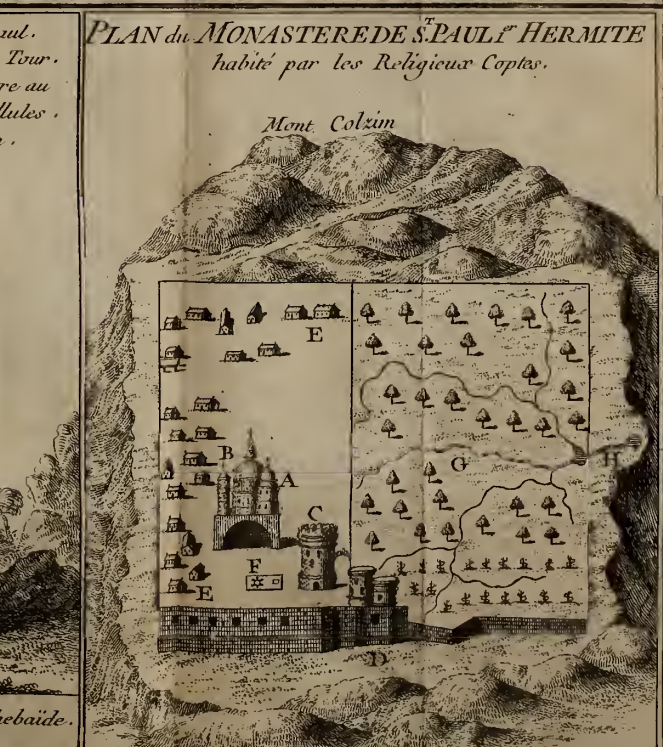 aul.
Tour.
re au
llules.
PLAN du MONASTERE DE S.T PAUL I.er HERMITE
habité par les Religieux Coptes.
Mont Colzim
E
B
A
G
H
C
F
E
D
hebaïde.